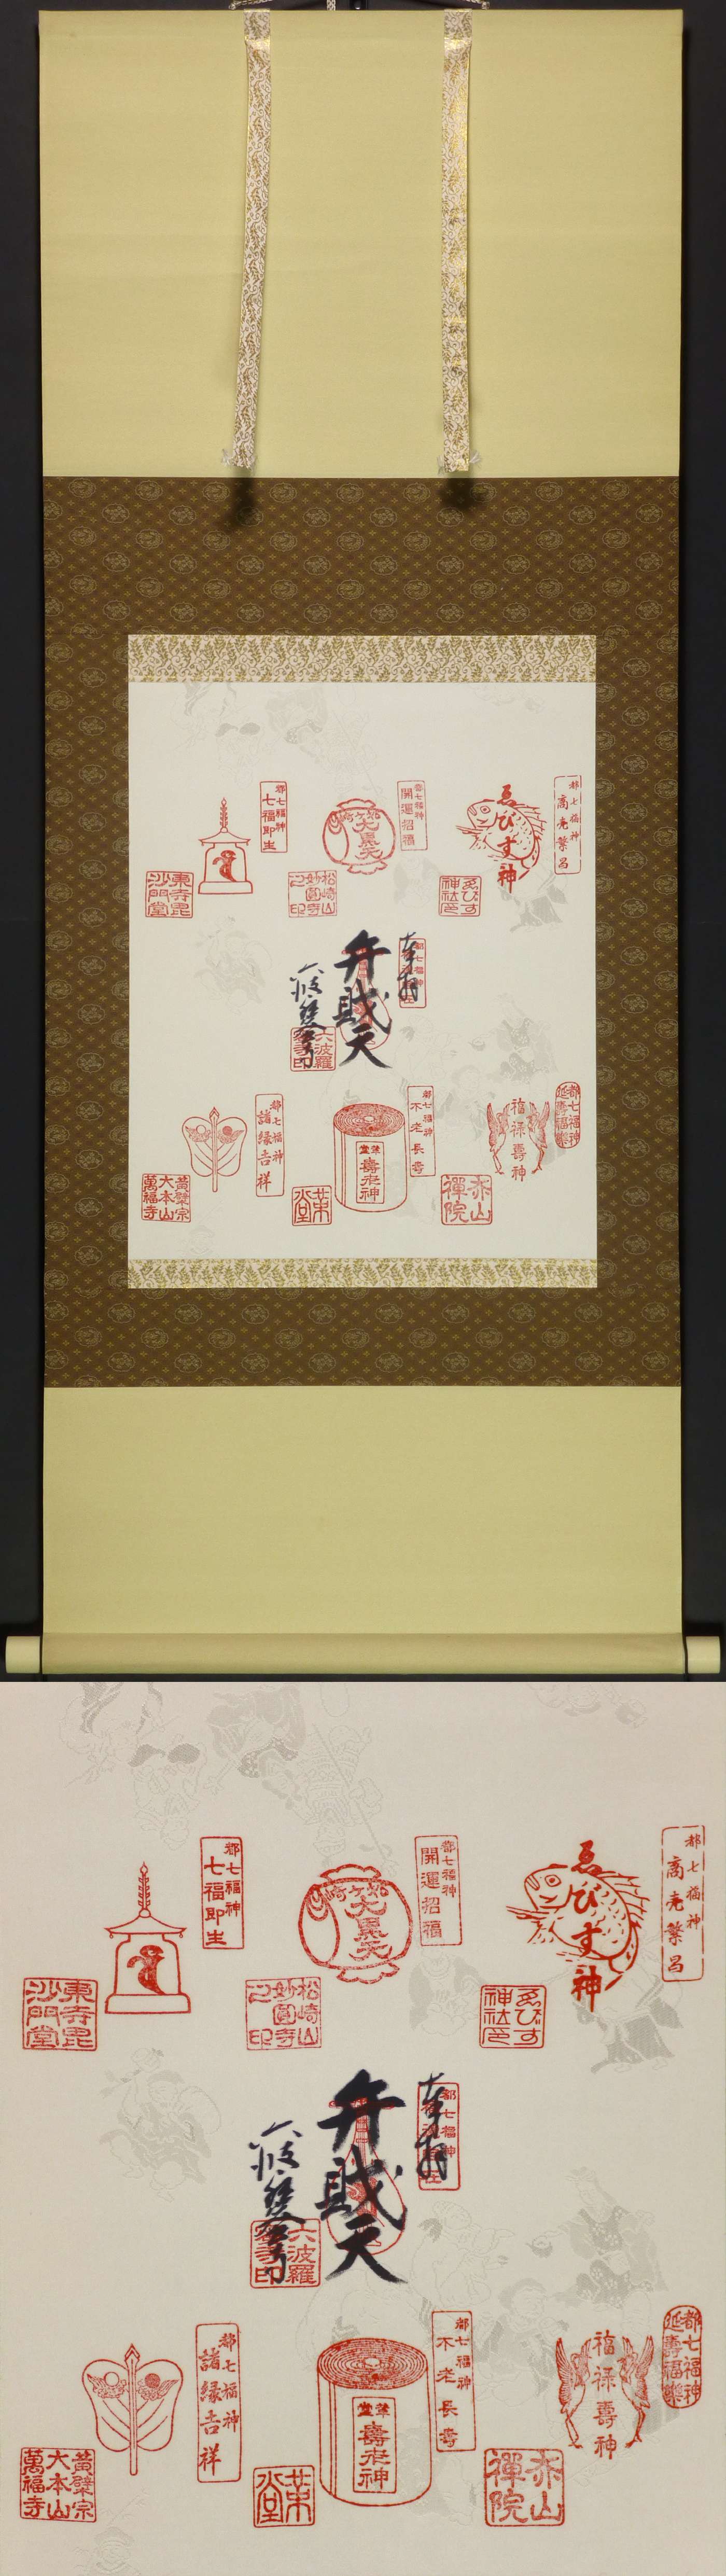 都七福神
商売繁昌
ゑびす神
ゑびす
神社印
都七福神
開運招福
松ヶ崎
大黒天
松崎山
妙圓寺
之印
都七福神
七福即生
東寺毘
沙門堂
奉拝
都七福神
弁財天
六波羅
密寺印
六波羅蜜寺
都七福神
延寿福楽
福禄壽神
赤山
禅院
都七福神
不老長壽
革堂
壽老神
革堂
都七福神
諸縁吉祥
黄檗宗
大本山
萬福寺